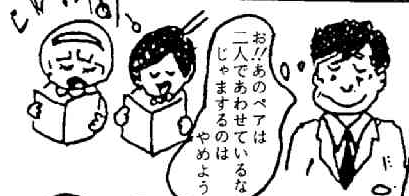 お!!あのペアは
二人であわせているな
じゃまするのは
やめよう